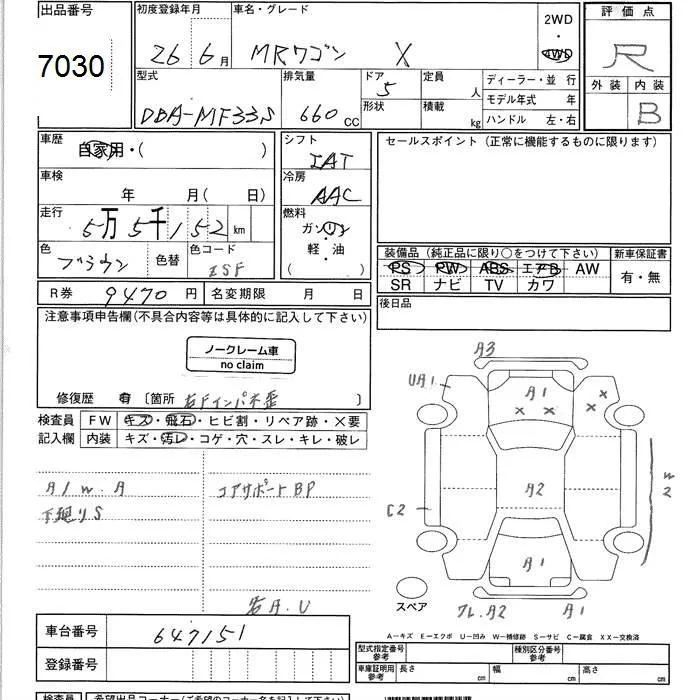 出品番号 初度登録年月 車名・グレード 2WD 評価点
7030 26 6月 MRワゴン X ・ 4WD R
型式 排気量 ドア 5 定員 人 ディーラー・並 行 外装 内装
DBA-MF33S 660 CC 形状 積載 kg モデル年式 年 B
ハンドル 左・右
車歴 自家用・( ) シフト IAT セールスポイント(正常に機能するものに限ります)
車検 年 月(日) 冷房 AAC
走行 5万5千152 km 燃料 ガソリン
色 ブラウン 色替 色コード ZSF 軽・油 ( )
装備品(純正品に限り○をつけて下さい) 新車保証書
PS PW ABS エアB AW 有・無
SR ナビ TV カワ
R券 9470 円 名変期限 月 日 後日品
注意事項申告欄(不具合内容等は具体的に記入して下さい)
ノークレーム車
no claim
修復歴 有 〔箇所 右Fインパネ歪 〕
検査員 FW キズ・飛石・ヒビ割・リペア跡・×要
記入欄 内装 キズ・汚レ・コゲ・穴・スレ・キレ・破レ
A/W.A コアサポートBP
下廻りS
右A.U
A3
UA1 A1 × ×
× ×
A2 W2
C2
A1
スペア フレ.A2 A1
A-キズ E-エクボ U-凹み W-補修跡 S-サビ C-腐食 XX-交換済
車台番号 647151
登録番号
型式指定番号 参考 種別区分番号 参考
車庫証明用 参考 長さ cm 幅 cm 高さ cm
検査員 希望出品コーナー(ご希望のコーナー名を記入して下さい)